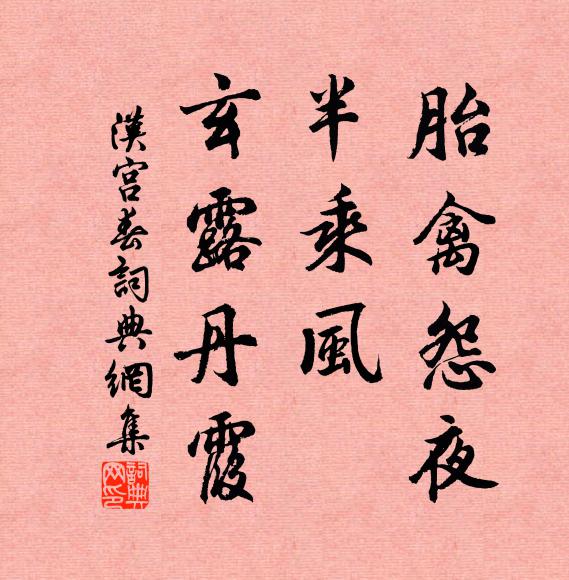 胎禽怨夜
半乘風
玄露丹霞
漢宮春詞典網集
詞典網印